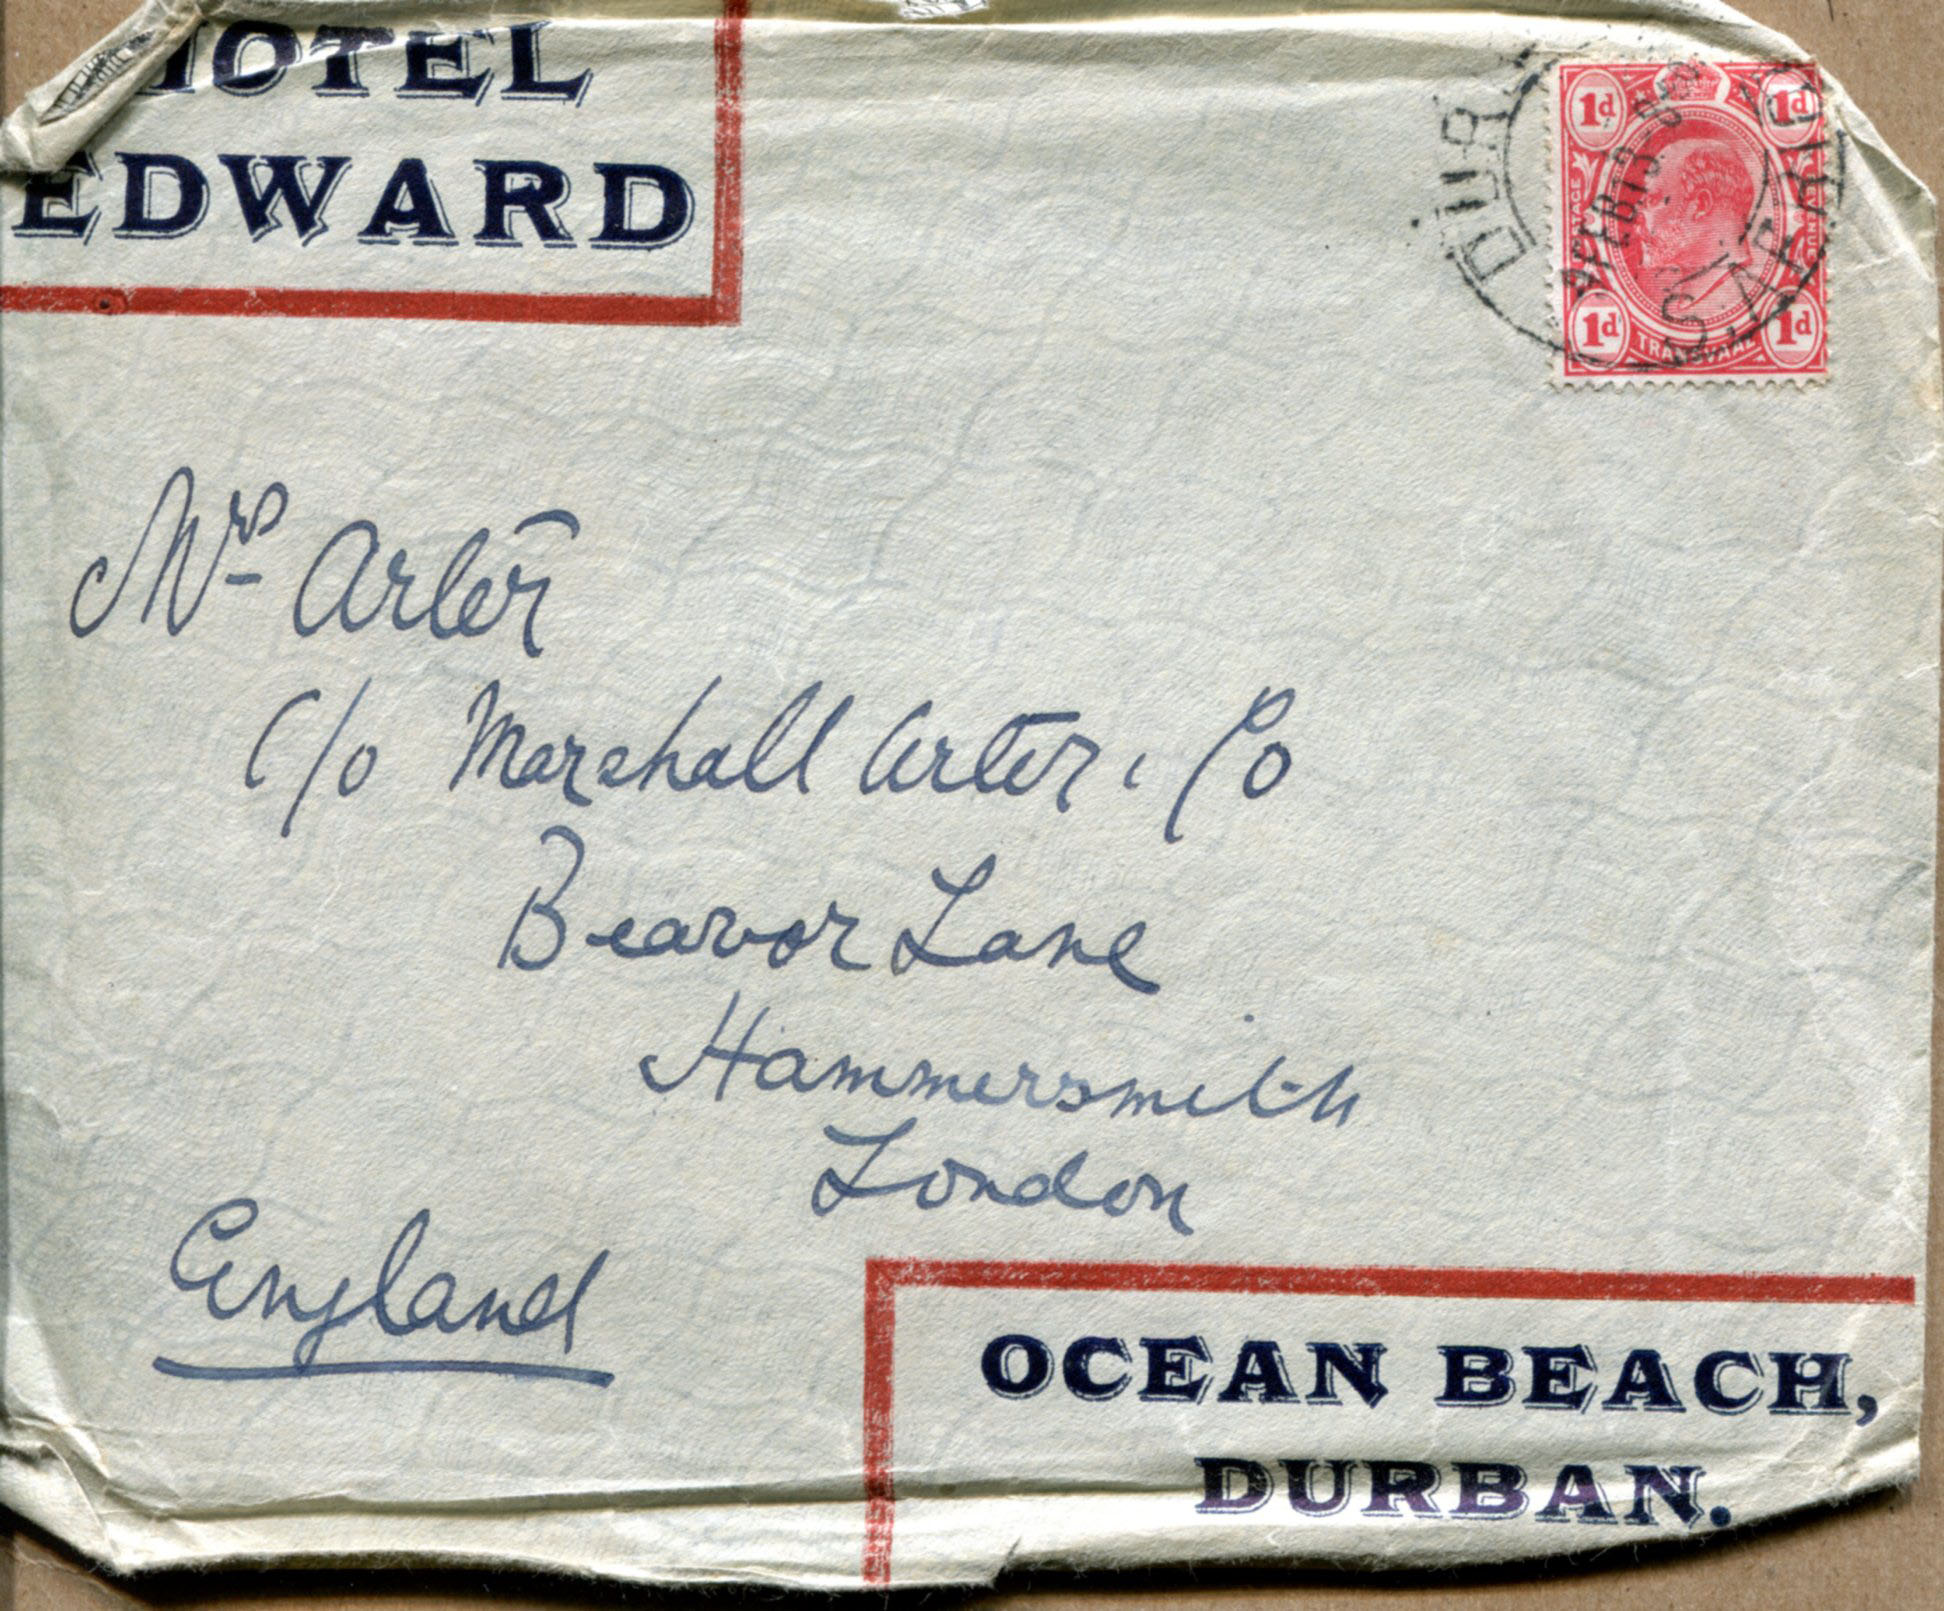 HOTEL
EDWARD
1d 1d
POSTAGE REVENUE
1d 1d
TRANSVAAL
FEB 13
Mrs Arter
C/o Marshall Arter & Co
Beavor Lane
Hammersmith
London
England
OCEAN BEACH,
DURBAN.